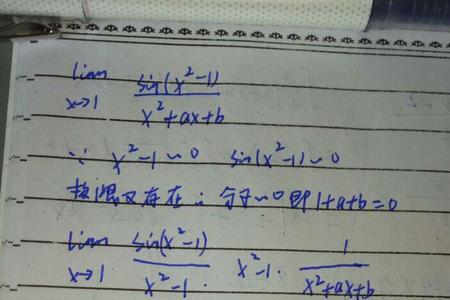 lim x→1 sin(x²-1)/(x²+ax+b)
∵ x²-1~0 sin(x²-1)~0
极限又存在 ∴ 分子~0 即 1+a+b=0
lim x→1 sin(x²-1)/(x²-1) · x²-1 · 1/(x²+ax+b)